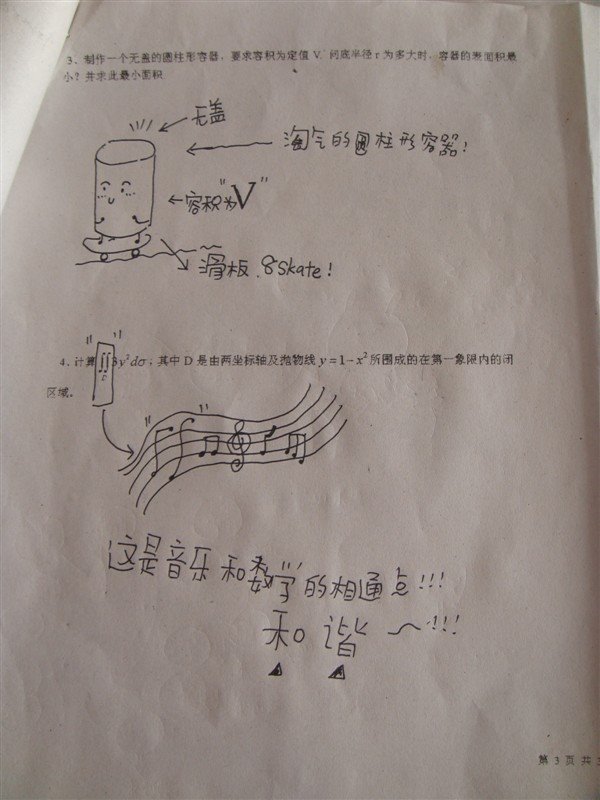 3、制作一个无盖的圆柱形容器，要求容积为定值 V. 问底半径 r 为多大时，容器的表面积最
小？并求此最小面积.
无盖
淘气的圆柱形容器!
容积"为V"
滑板. Skate!
4、计算∬ 3y²dσ；其中 D 是由两坐标轴及抛物线 y = 1 − x² 所围成的在第一象限内的闭
区域。
这是音乐和"数学"的相通点!!!
和谐~!!!
第 3 页 共